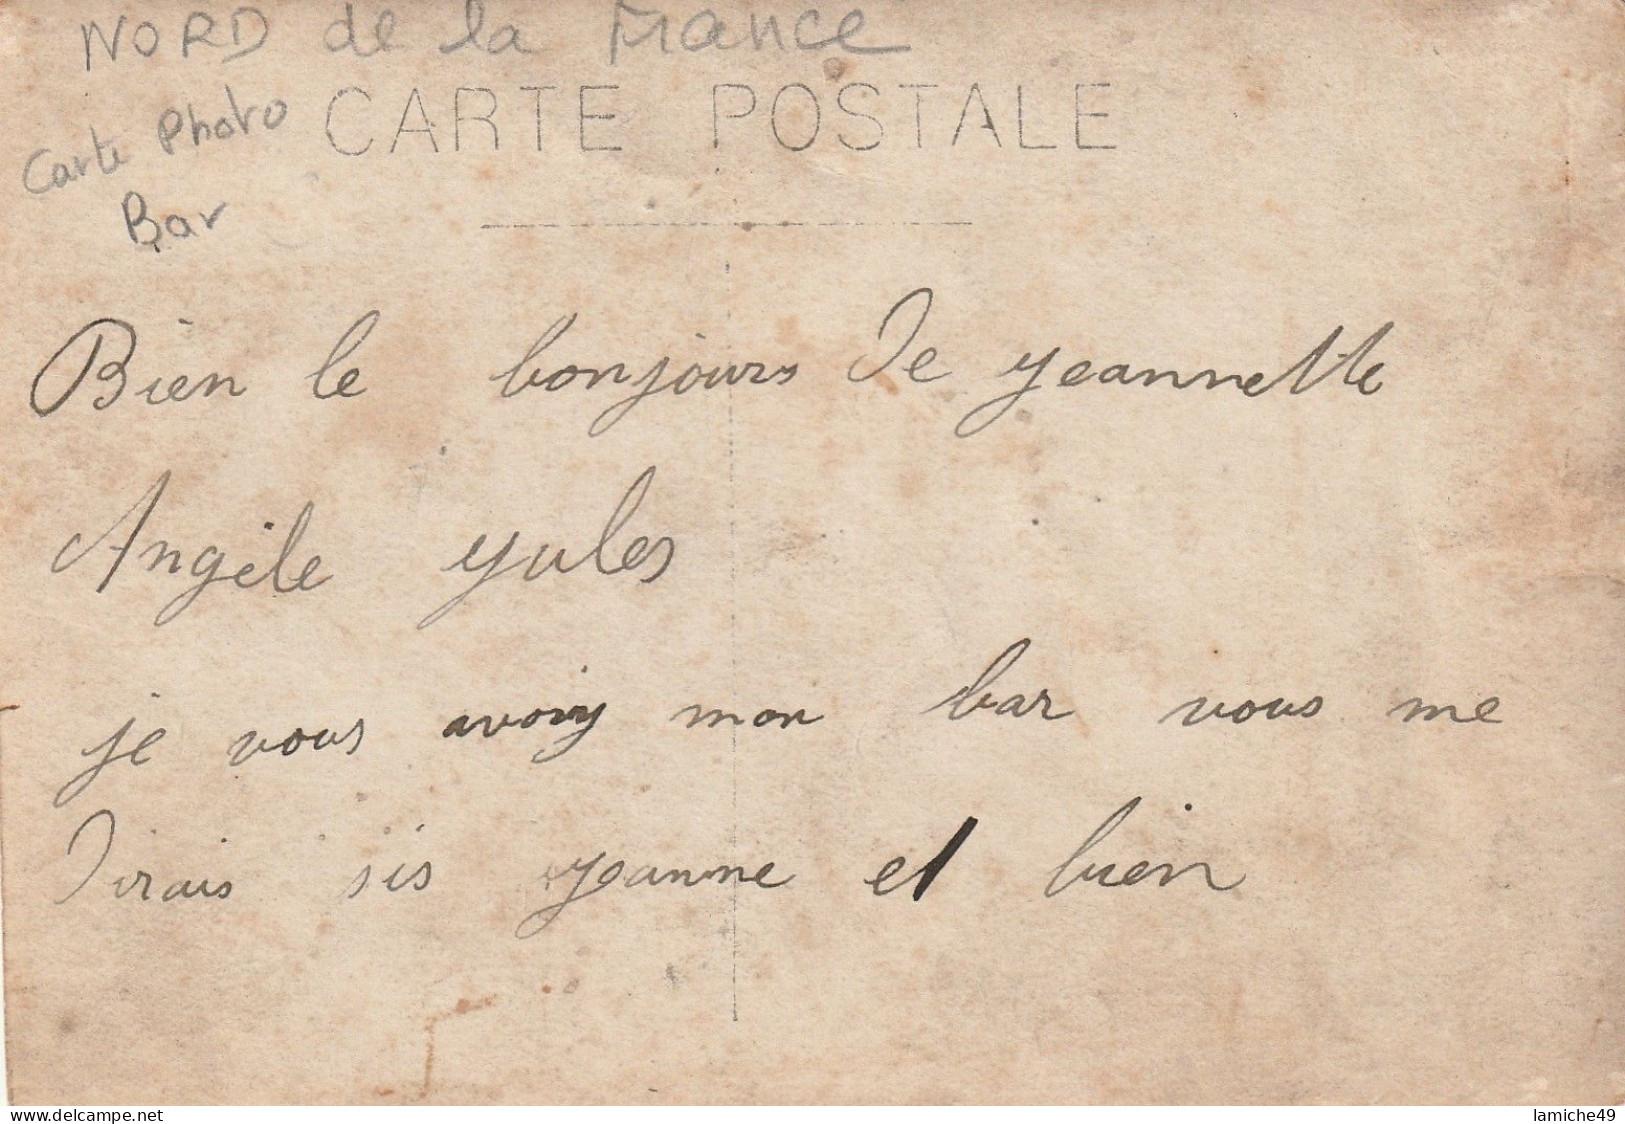 NORD de la France
Carte Photo CARTE POSTALE
Bar
Bien le bonjours de yeannette
Angèle yules
je vous avoiy mon bar vous me
dirais sis yeanne et bien
www.delcampe.net
lamiche49